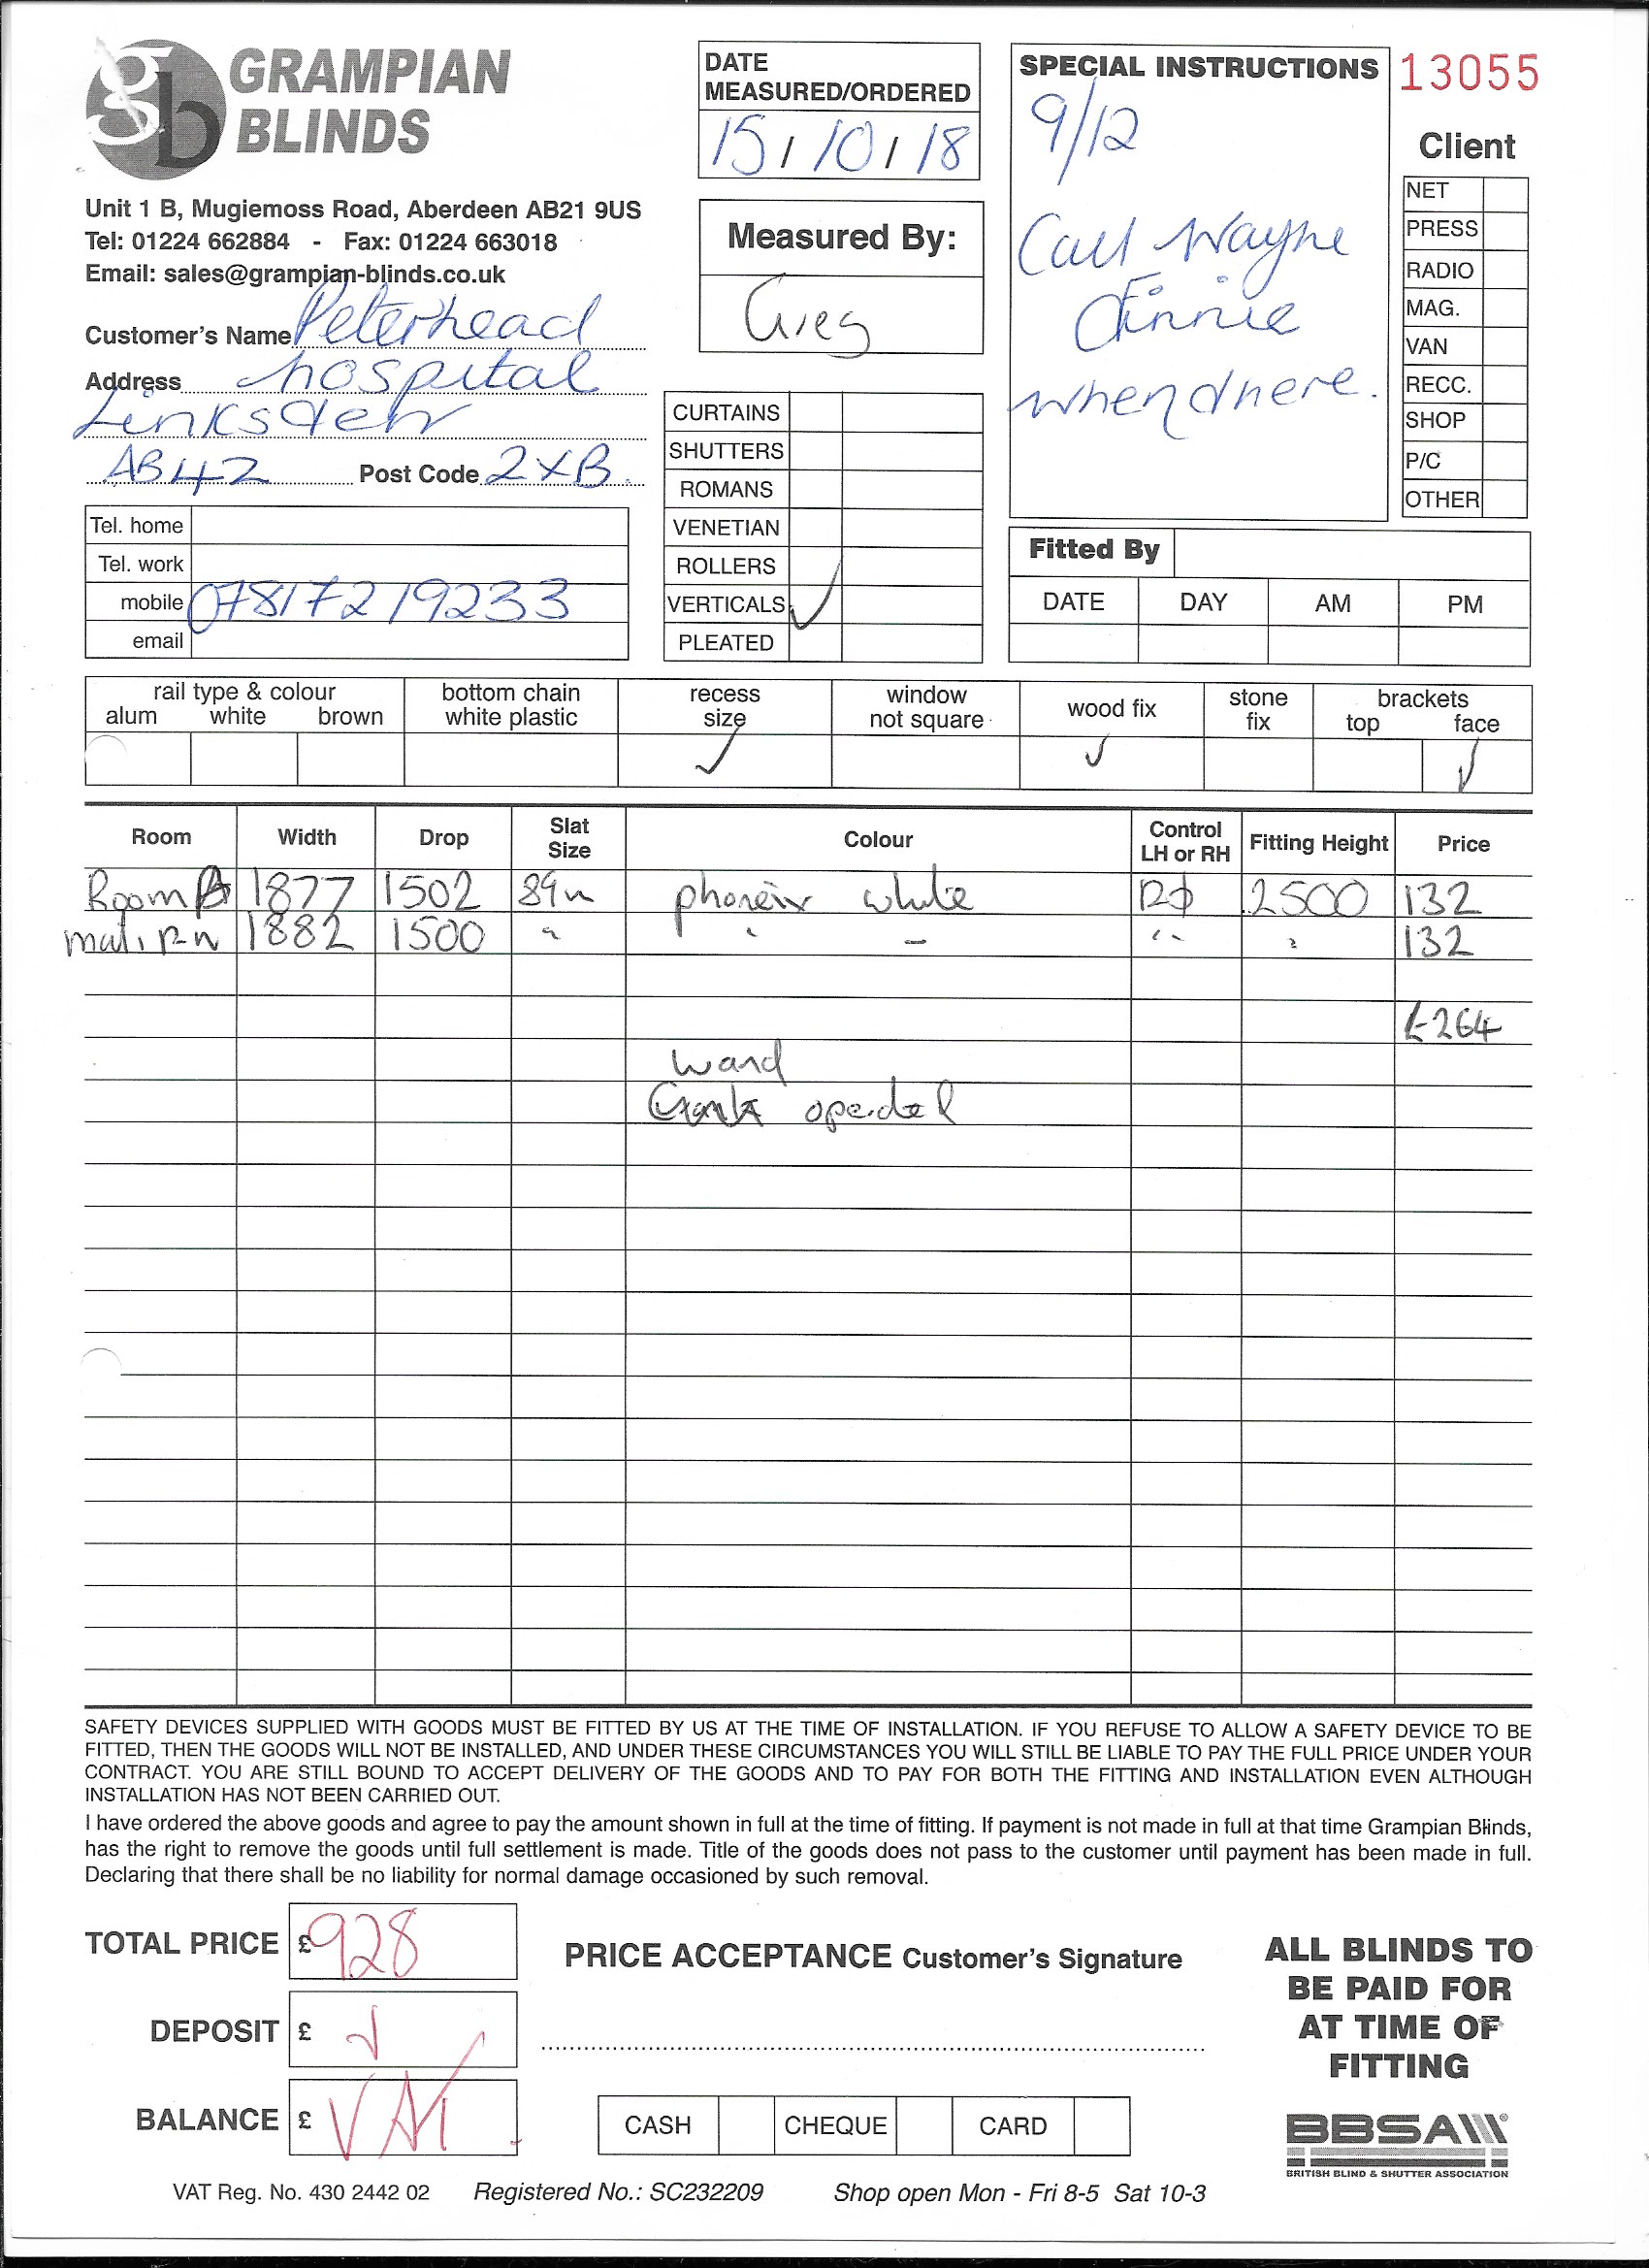 gb GRAMPIAN
BLINDS
Unit 1 B, Mugiemoss Road, Aberdeen AB21 9US
Tel: 01224 662884 - Fax: 01224 663018
Email: sales@grampian-blinds.co.uk
Customer's Name Peterhead
Address hospital
Links
AB42 Post Code 2XB.
Tel. home
Tel. work
mobile 07817219233
email
DATE
MEASURED/ORDERED
15/10/18
Measured By:
Greg
CURTAINS
SHUTTERS
ROMANS
VENETIAN
ROLLERS
VERTICALS ✓
PLEATED
SPECIAL INSTRUCTIONS
9/12
Call Wayne
Finnie
when there.
13055
Client
NET
PRESS
RADIO
MAG.
VAN
RECC.
SHOP
P/C
OTHER
Fitted By
DATE DAY AM PM
rail type & colour bottom chain recess window wood fix stone brackets
alum white brown white plastic size not square fix top face
✓ ✓ ✓
Room Width Drop Slat Size Colour Control LH or RH Fitting Height Price
Room 1877 1502 89m phoneix white 2500 132
1882 1500 " " " " " 132
£264
wand
operated
SAFETY DEVICES SUPPLIED WITH GOODS MUST BE FITTED BY US AT THE TIME OF INSTALLATION. IF YOU REFUSE TO ALLOW A SAFETY DEVICE TO BE
FITTED, THEN THE GOODS WILL NOT BE INSTALLED, AND UNDER THESE CIRCUMSTANCES YOU WILL STILL BE LIABLE TO PAY THE FULL PRICE UNDER YOUR
CONTRACT. YOU ARE STILL BOUND TO ACCEPT DELIVERY OF THE GOODS AND TO PAY FOR BOTH THE FITTING AND INSTALLATION EVEN ALTHOUGH
INSTALLATION HAS NOT BEEN CARRIED OUT.
I have ordered the above goods and agree to pay the amount shown in full at the time of fitting. If payment is not made in full at that time Grampian Blinds,
has the right to remove the goods until full settlement is made. Title of the goods does not pass to the customer until payment has been made in full.
Declaring that there shall be no liability for normal damage occasioned by such removal.
TOTAL PRICE £928
DEPOSIT £ ✓
BALANCE £ VAT
PRICE ACCEPTANCE Customer's Signature
CASH CHEQUE CARD
ALL BLINDS TO
BE PAID FOR
AT TIME OF
FITTING
BBSA
BRITISH BLIND & SHUTTER ASSOCIATION
VAT Reg. No. 430 2442 02 Registered No.: SC232209 Shop open Mon - Fri 8-5 Sat 10-3